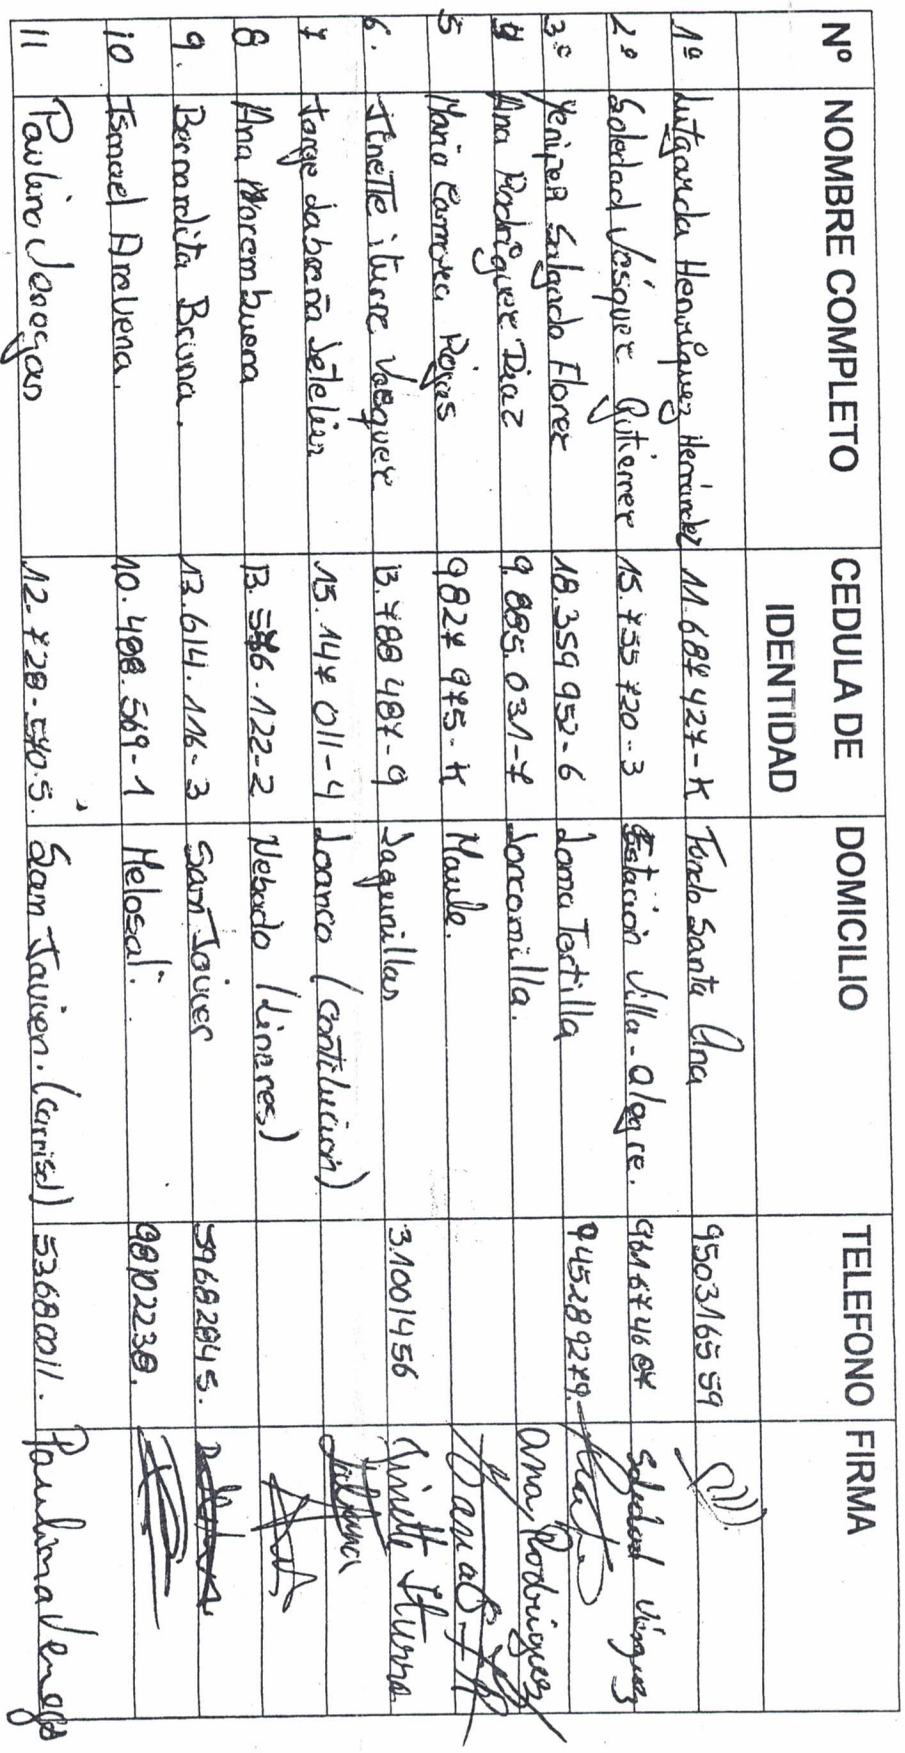 Nº NOMBRE COMPLETO CEDULA DE IDENTIDAD DOMICILIO TELEFONO FIRMA
1º Lutgarda Henríquez Hernández 11.687427-K Fundo Santa Ana 950316559
2º Soledad Vásquez Gutierrez 15.755720-3 Estación Villa-alegre. 961674687 Soledad Vásquez
3º Yenifer Salgado Florez 18.359952-6 Loma Tortilla 945289279.
4 Ana Rodríguez Diaz 9.885.031-7 Loncomilla. Ana Rodriguez
5 Maria Zamora Rojas 9827975-K Maule.
6. Jinette iturra Vasquez 13.788487-9 Lagunillas 3.1001456 Jinette Iturra
7 Jorge Letelier 15.147011-4 Loanco (contitucion)
8 Ana Norambuena 13.586.122-2 Nebado (Linares)
9. Bernardita Bravo. 13.614.116-3 San Javier 59682845.
10 Ismael Aravena. 10.488.569-1 Melosal. 98102238.
11 Paulina Venegas 12.728.570.5. San Javier. (carrisal) 53680011. Paulina Venegas